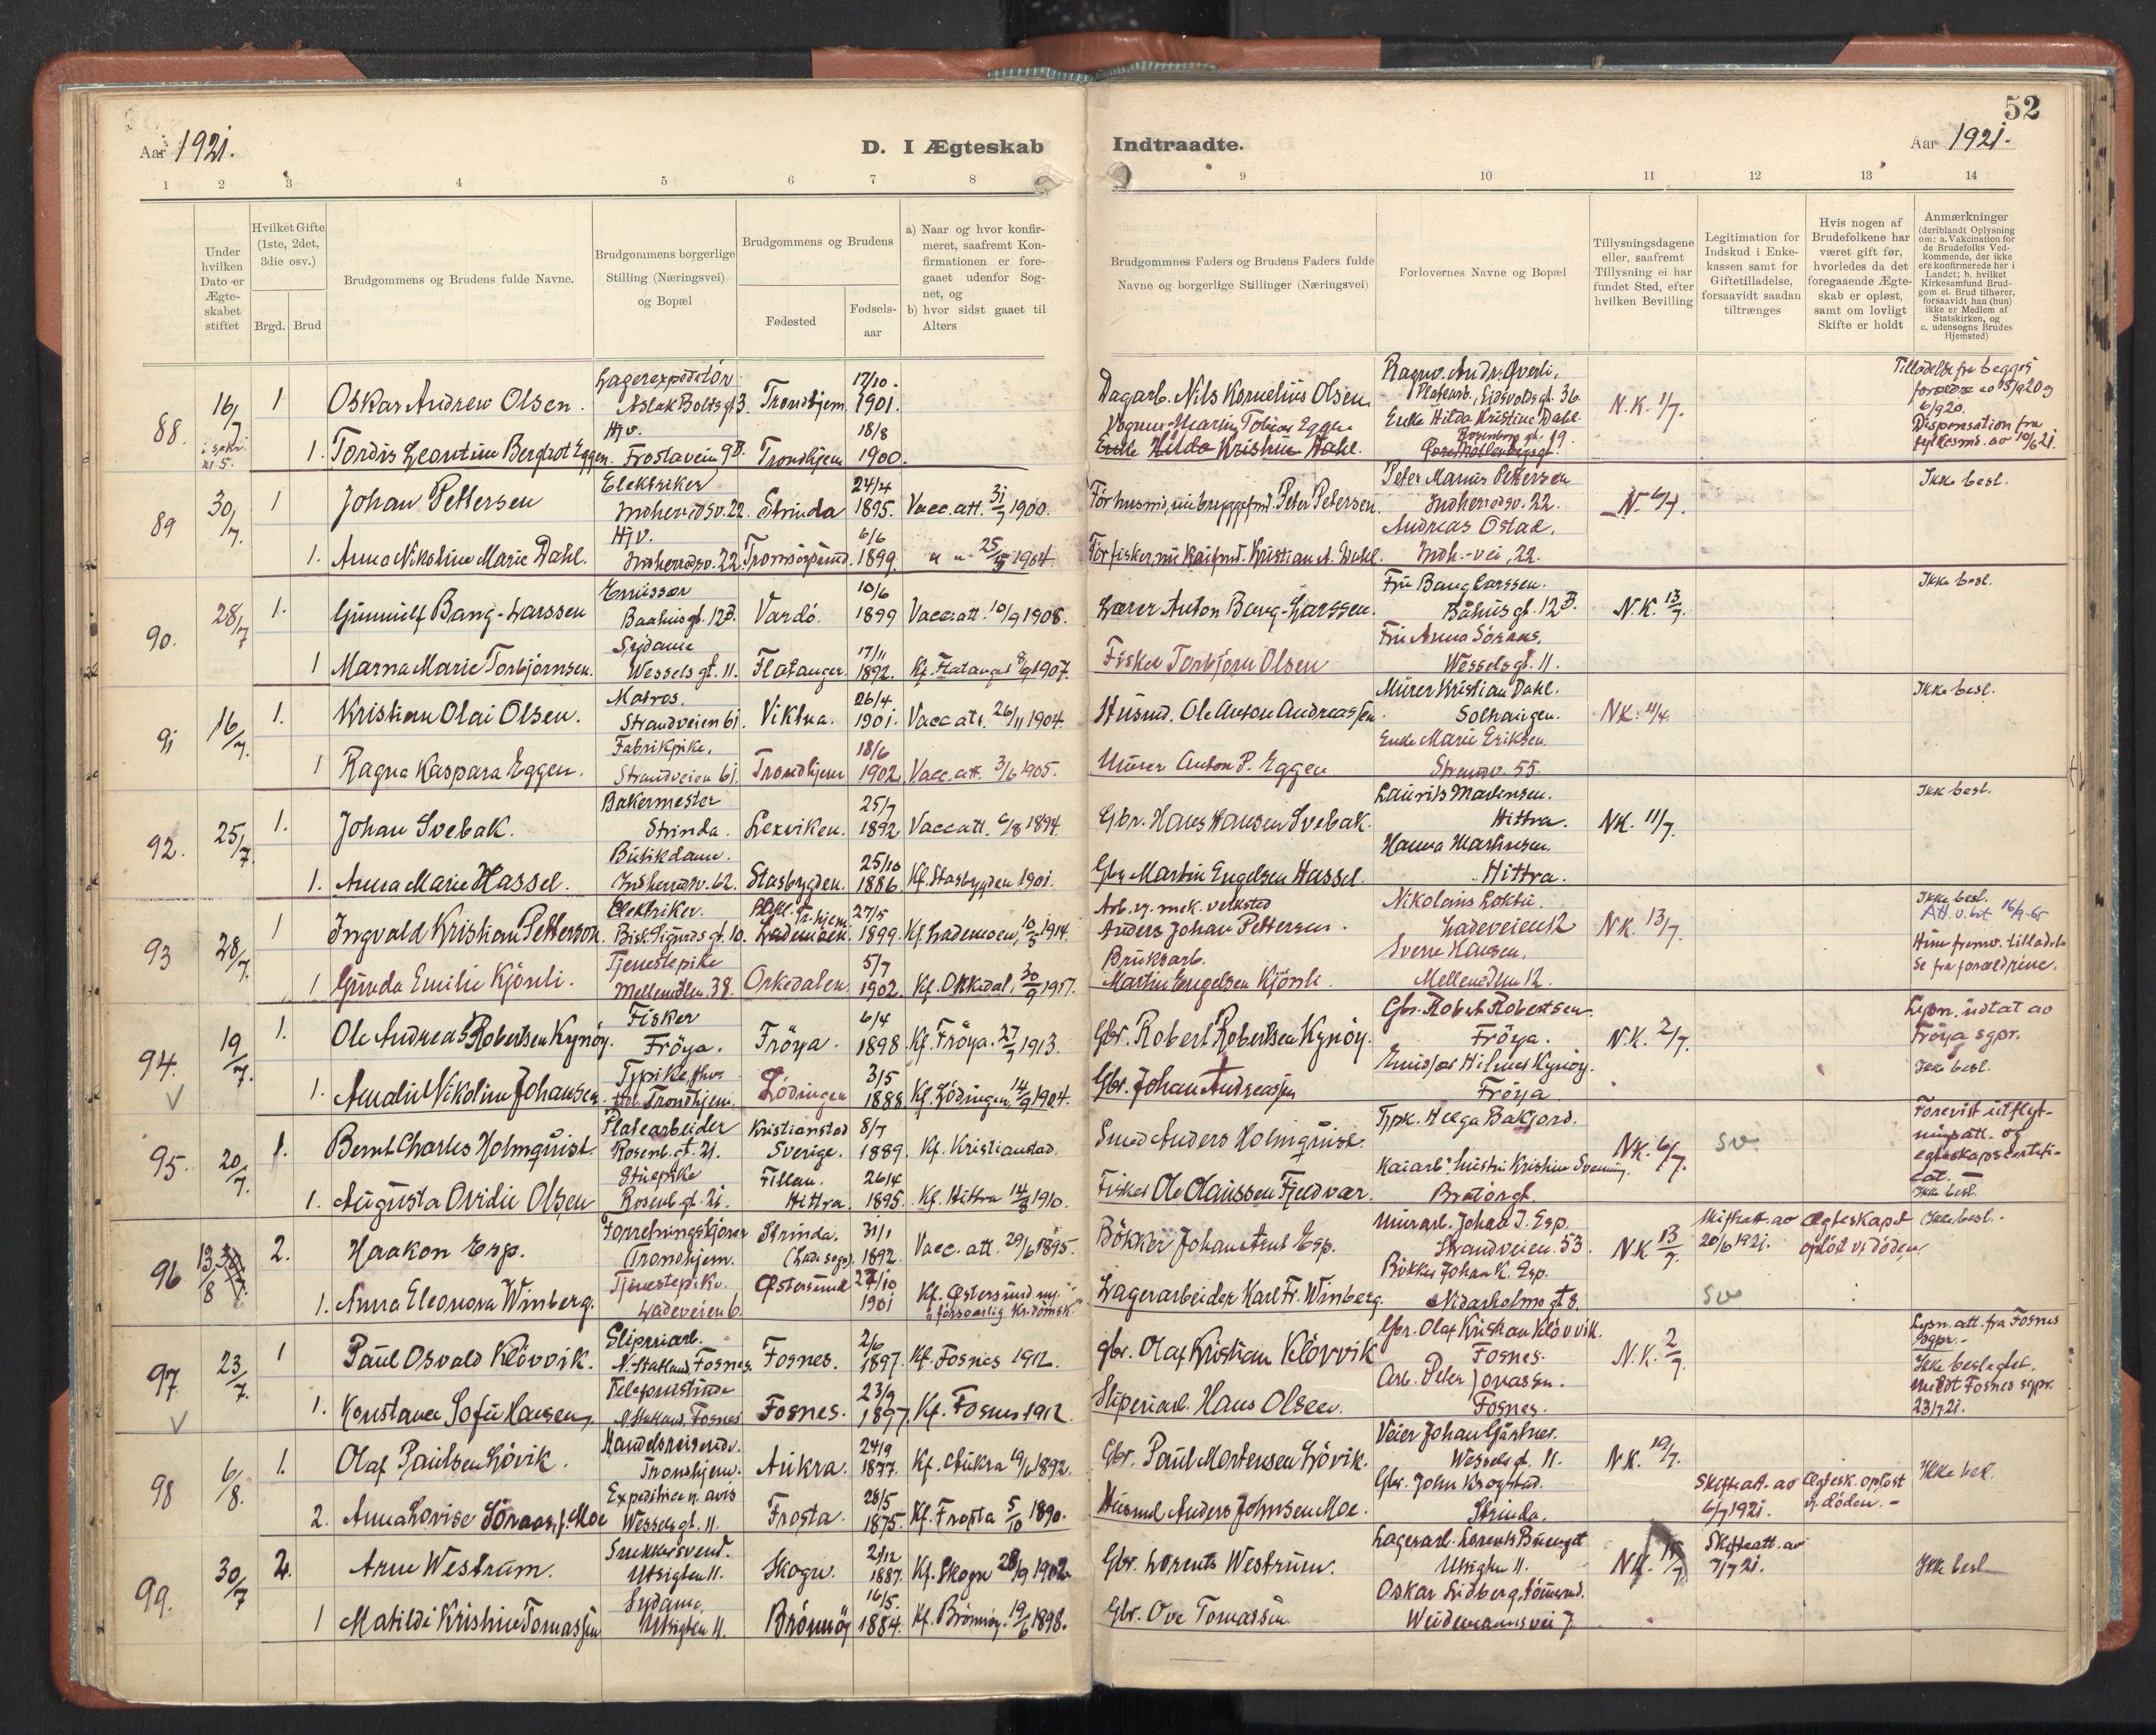 52
Aar 1921. D. I Ægteskab Indtraadte. Aar 1921.
1 2 3 4 5 6 7 8 9 10 11 12 13 14
Under hvilken Dato er Ægteskabet stiftet
Hvilket Gifte (1ste, 2det, 3die osv.)
Brgd. Brud
Brudgommens og Brudens fulde Navne.
Brudgommens borgerlige Stilling (Næringsvei) og Bopæl
Brudgommens og Brudens
Fødested Fødselsaar
a) Naar og hvor konfirmeret, saafremt Konfirmationen er foregaaet udenfor Sognet, og
b) hvor sidst gaaet til Alters
Brudgommnes Faders og Brudens Faders fulde Navne og borgerlige Stillinger (Næringsvei)
Forlovernes Navne og Bopæl
Tillysningsdagene eller, saafremt Tillysning ei har fundet Sted, efter hvilken Bevilling
Legitimation for Indskud i Enkekassen samt for Giftetilladelse, forsaavidt saadan tiltrænges
Hvis nogen af Brudefolkene har været gift før, hvorledes da det foregaaende Ægteskab er opløst, samt om lovligt Skifte er holdt
Anmærkninger (deriblandt Oplysning om: a. Vakcination for de Brudefolks Vedkommende, der ikke ere konfirmerede her i Landet; b. hvilket Kirkesamfund Brudgom el. Brud tilhører, forsaavidt han (hun) ikke er Medlem af Statskirken, og c. udensogns Brudes Hjemsted)
88. 16/7 1 Oskar Andrew Olsen. Lagerexpeditör Aslak Boltsgt 3. Trondhjem 17/10. 1901. Dagarb. Nils Kornelius Olsen. Ragnv. Andr. Överli, Platearb., Eidsvolds gt. 36. N.K. 1/7. Tilladelse fra begges
1. Tordis Leontine Bergliot Eggen. Hjv. Frostavein 9B. Trondhjem 18/8 1900. Enke Hilda Kristine Dahl. Enke Hilda Kristine Dahl Rosenborg gt. 19. Dispensation fra fylkesmd. av 10/6 21.
89 30/7. 1 Johan Pettersen Elektriker Indherredsv. 22. Strinda 24/4 1895. Vacc. att. 31/7 1900. Før husmd, nu bryggefmd. Peter Petersen. Peter Marius Pettersen Indherredsv. 22. N. 6/7. Ikke besl.
1. Anna Nikoline Marie Dahl. Hjv. Indherredsv. 22. Tromsösund. 6/6 1899. " " 25/5 1904. Før fisker, nu kaifmd. Kristian A. Dahl. Andreas Ostad. Indh.-vei, 22.
90. 28/7 1. Gunnulf Bang-Larssen Emissær Baahusgt. 12B. Vardö. 10/6 1899 Vacc att. 10/9 1908. Lærer Anton Bang-Larssen. Fru Bang Larssen. Båhus gt. 12B. N.K. 13/7. Ikke besl.
1 Marna Marie Torbjörnsen. Sydame Wessels gt. 11. Flatanger. 17/11 1892. Kf. Flatanger 8/9 1907. Fisker Torbjörn Olsen Fru Anna Söraas, Wesselsgt. 11.
91 16/7. 1. Kristian Olai Olsen. Matros. Strandveien 61. Vikna. 26/4 1901. Vacc att. 26/11 1904. Husmd. Ole Anton Andreassen. Murer Kristian Dahl. Solhaugen. NK. 11/4. Ikke besl.
1 Ragna Kaspara Eggen. Fabrikpike, Strandveien 61. Trondhjem 18/6 1902. Vacc. att. 3/6 1905. Murer Anton P. Eggen Enke Marie Eriksen. Strandv. 55.
92. 25/7. 1. Johan Svebak. Bakermester Strinda. Lexviken. 25/7 1892 Vacc att. 6/8 1894. Gbr. Hans Hansen Svebak. Laurits Martinsen. Hittra. NK. 11/7. Ikke besl.
1. Anna Marie Hassel. Butikdame. Indherredsv. 62. Stasbygden. 25/10 1886 Kf. Stadsbygden 1901. Gbr. Martin Engelsen Hassel. Hanna Martinsen. Hittra.
93 28/7. 1 Ingvald Kristian Petterson. Elektriker. Bisk. Sigurds gt. 10. Bakl. Tr.hjem Lademoen. 27/5 1899. Kf. Lademoen, 10/5 1914. Arb. v. mek. verksted Anders Johan Pettersen. Nikolaus Loktu. Ladeveien 12 NK. 13/7. Ikke besl. Att. u. bit 16/9-65
1 Gunda Emilie Kjönli. Tjenestepike Mellemilen. 38. Orkedalen 5/7 1902. Kf. Orkedal, 30/9 1917. Bruksarb. Martin Engelsen Kjönli. Sverre Hansen, Mellemilen 12.
94. 19/7. V 1. Ole Andreas Robertsen Kynöy. Fisker Fröya. Fröya. 6/4 1898. Kf. Fröya. 27/7 1913. Gbr. Robert Robertsen Kynöy. Gbr. Robert Robertsen Fröya. N.K. 2/7. Lysn. udtat av Fröya sgpr. Ikke besl.
1. Amalie Nikoline Johansen. Tj.pike Trondhjem. Lödingen 3/5 1888. Kf. Lödingen, 14/9 1904. Gbr. Johan Andreassen Emissær Hilmer Kynöy. Fröya
95. 20/7. 1. Bernt Charles Holmquist. Platearbeider Rosenb. gt. 21. Kristianstad Sverige. 8/7 1889. Kf. Kristianstad. Smed Anders Holmquist. Tjpk. Helga Bakjord. NK. 6/7. sv. Forevist utflytningsatt. og
1. Augusta Ovidie Olsen Stuepike Rosenb. gt. 21. Fillan. Hittra. 26/4 1895. Kf. Hittra 14/8 1910. Fisker Ole Olaussen Fjeldvær. Bratörgt. Ikke besl.
96 13/8 2. Haakon Esp. Forretningskjörer Trondhjem. Strinda. (Lade sogn) 31/1 1892. Vacc. att. 29/6 1895. Bökker Johan Arnt Esp. Murarb. Johan J. Esp. Strandveien. 53. NK 13/7. Skifteatt. av 20/6 1921. Ægteskapet oplöst v. döden. Ikke besl.
1. Anna Eleonora Winberg. Tjenestepike. Ladeveien 6. Östersund 27/10 1901 Kf. Östersund Lagerarbeider Karl Fr. Winberg. Bökker Johan K. Esp. Nidarholms gt 8. sv
97 23/7. V 1 Paul Osvald Klövvik. Sliperiarb. N. Statland, Fosnes. Fosnes. 2/6 1897. Kf. Fosnes 1912. Gbr. Olaf Kristian Klövvik Gbr. Olaf Kristian Klövvik. Fosnes. N.K. 2/7. Lysn. att. fra Fosnes sgpr. - Ikke beslegtet.
1. Konstance Sofie Hansen. Telefonistinde N. Statland, Fosnes Fosnes. 23/9 1897. Kf. Fosnes 1912. Sliperiarb. Hans Olsen. Arb. Peter Jonassen. Fosnes. meldt Fosnes sgpr. 23/7 21.
98 6/8. 1. Olaf Paulsen Lövik. Handelsreisende. Trondhjem. Aukra. 24/9 1877. Kf. Aukra 19/6 1892. Gbr. Paul Mortensen Lövik. Veier Johan Gärtner. Wessels gt. 11. NK. 19/7. Ikke besl.
2. Anna Lovise Söraas, f. Moe Expeditrice n. avis Wessels gt. 11. Frosta. 28/5 1875. Kf. Frosta 5/10 1890. Husmd Anders Johnsen Moe. Gbr. John Krogstad. Strinda. Skifteatt. av 6/7 1921. Ægtesk. oplöst v. döden. -
99. 30/7 2. Arne Westrum. Snekkersvend. Utsigten 11. Skogn. 2/12 1887. Kf. Skogn 28/9 1902. Gbr. Lorents Westrum. Lagerarb. Lorents Utsigten 11. NK. 15/7 Skifteatt. av 7/7 21. Ikke besl
1 Matilde Kristine Tomassen Sydame Utsigten 11. Brönnöy 16/5. 1884. Kf. Brönnöy. 19/6 1898. Gbr. Ove Tomassen. Oskar Lidberg, Weidemannsvei 7.